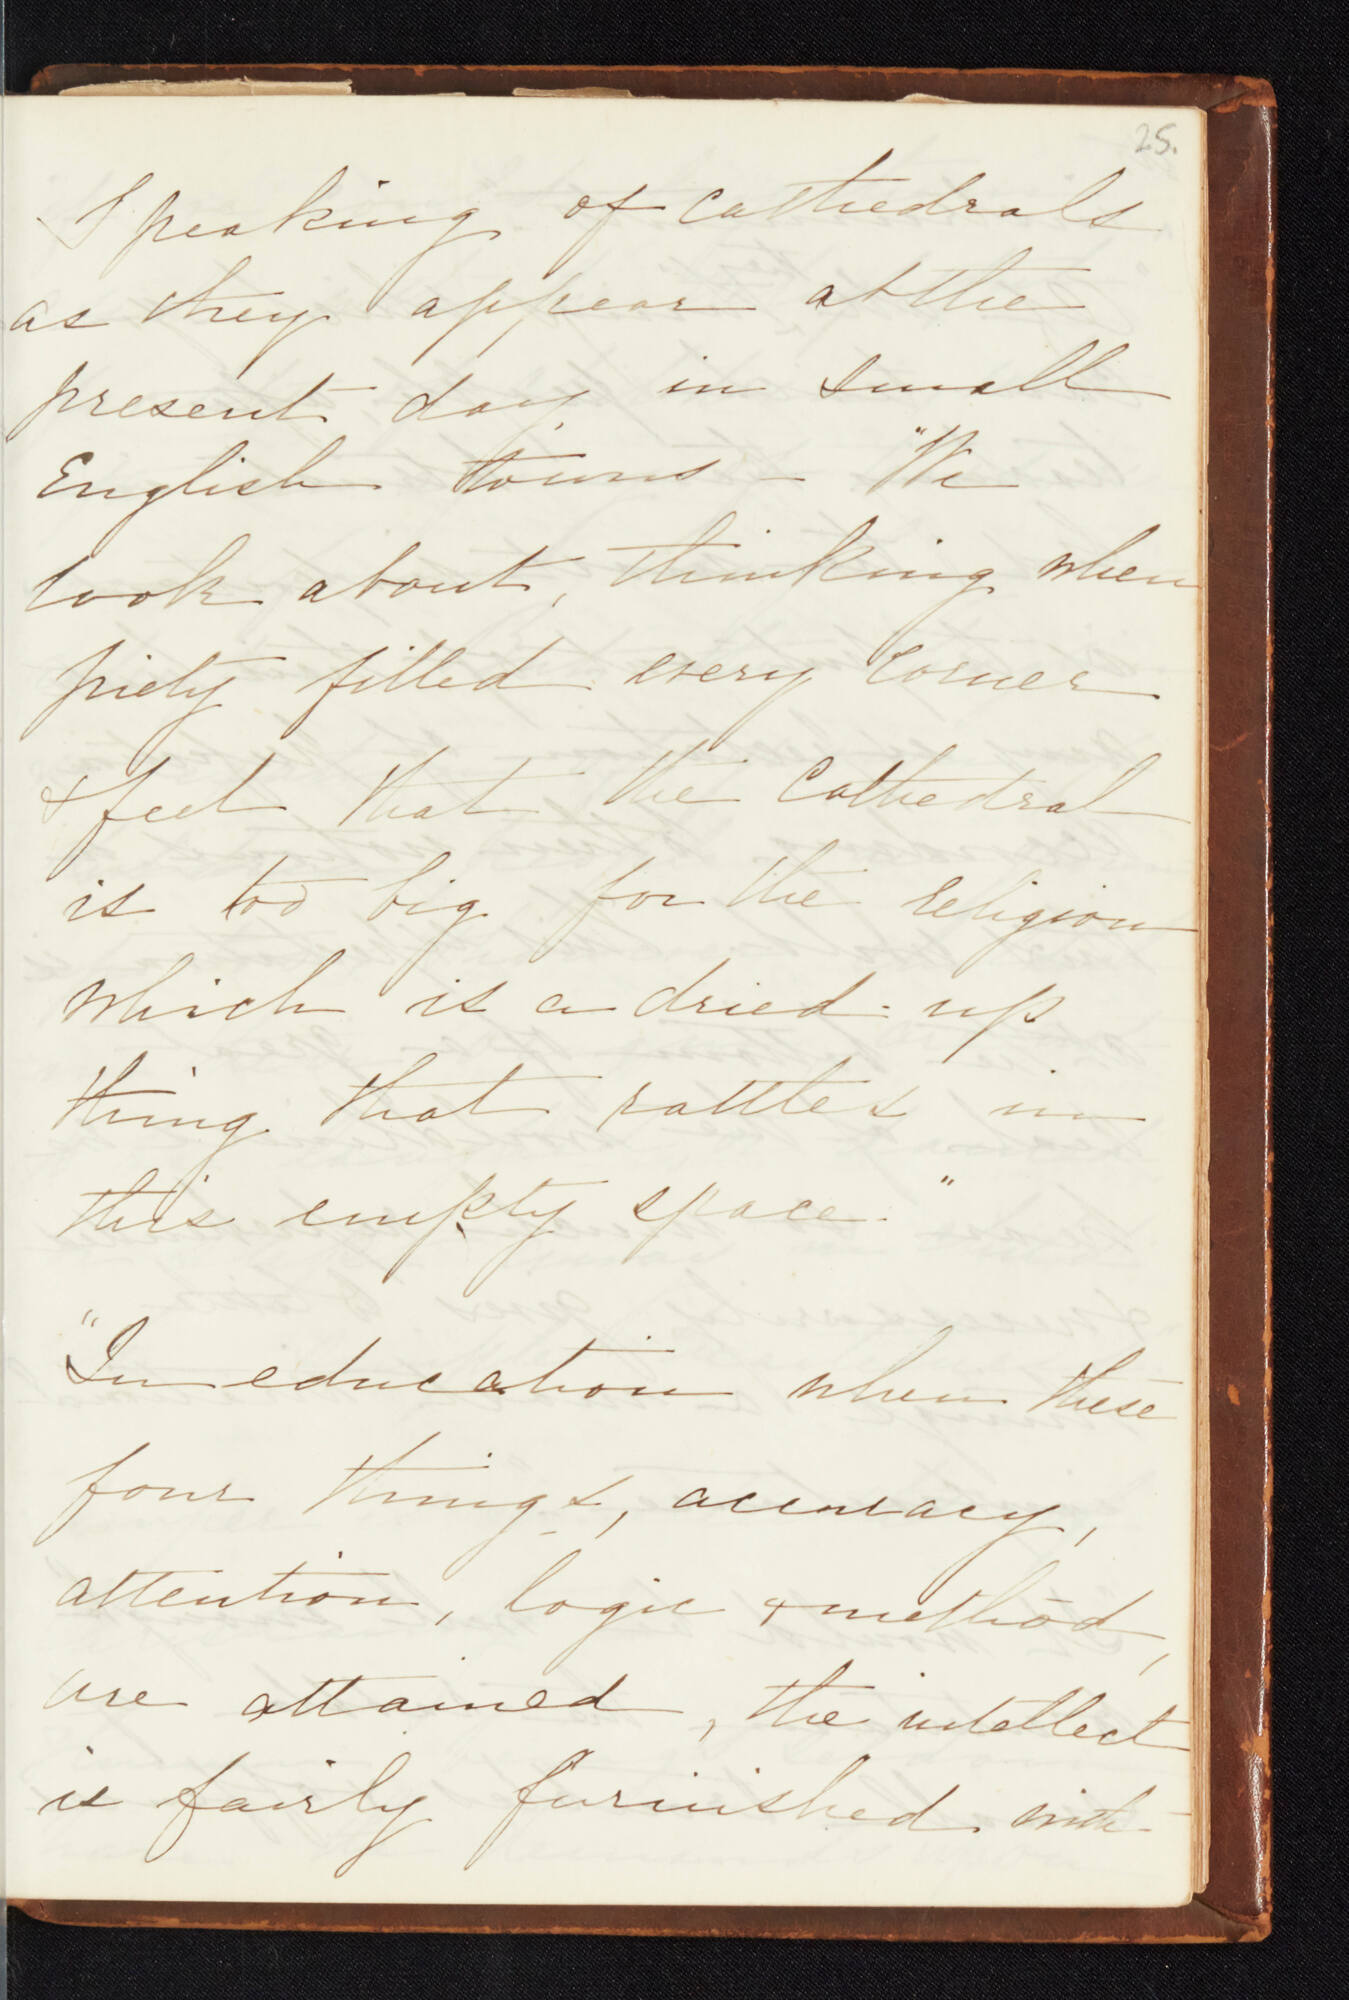 25.
Speaking of cathedrals
as they appear at the
present day, in small
English towns - "We
look about, thinking when
piety filled every corner
& feel that the Cathedral
is too big for the religion
which is a dried-up
thing that rattles in
this empty space."
"In education when these
four things, accuracy,
attention, logic & method,
are attained, the intellect
is fairly furnished with